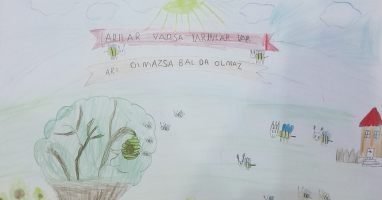 ARILAR VARSA YARINLAR VAR
ARI OLMAZSA BAL DA OLMAZ